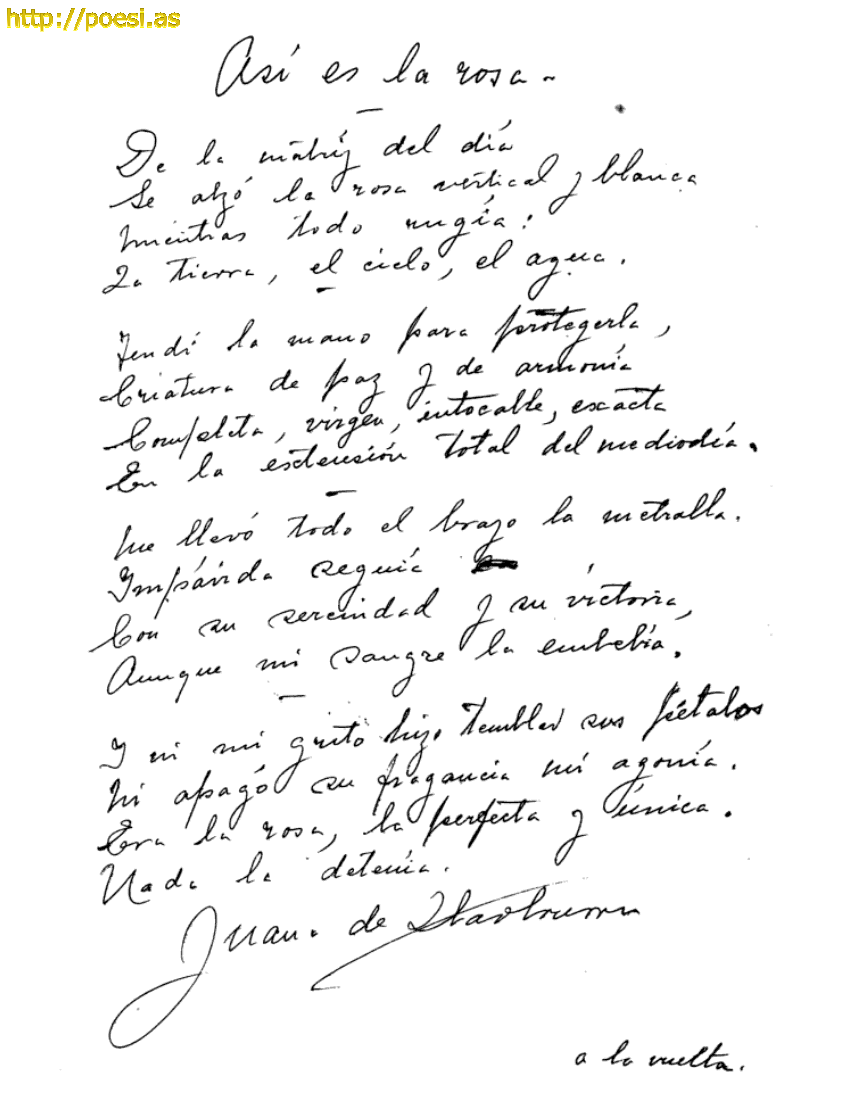 http://poesi.as
Así es la rosa.
De la matriz del día
Se alzó la rosa vertical y blanca
Mientras todo rugía:
La tierra, el cielo, el agua.
Tendí la mano para protegerla,
Criatura de paz y de armonía
Completa, virgen, intocable, exacta
En la extensión total del mediodía.
Me llevó todo el brazo la metralla.
Impávida seguía
Con su serenidad y su victoria,
Aunque mi sangre la embebía.
Y ni mi grito hizo temblar sus pétalos
Ni apagó su fragancia mi agonía.
Era la rosa, la perfecta y única.
Nada la detenía.
Juana de Ibarbourou
a la vuelta.